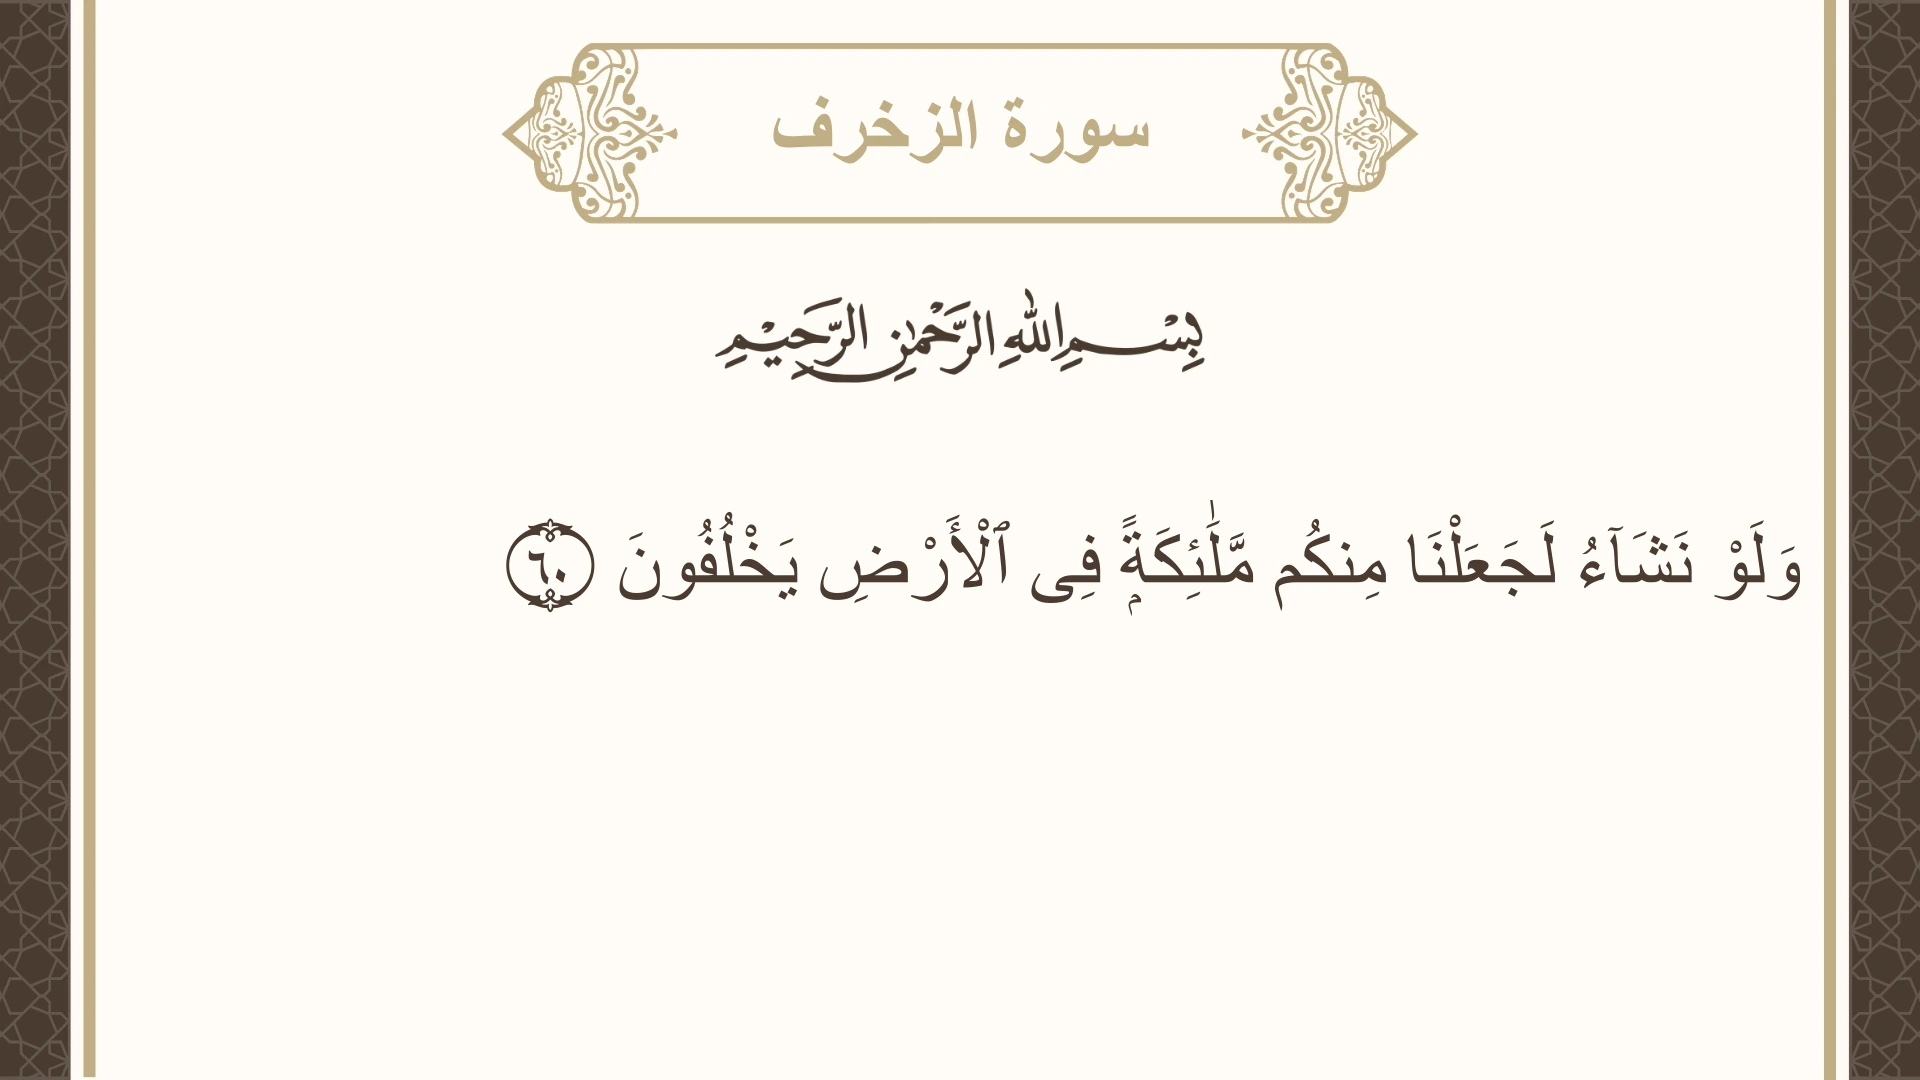 سورة الزخرف
بِسْمِ اللهِ الرَّحْمٰنِ الرَّحِيْمِ
وَلَوْ نَشَآءُ لَجَعَلْنَا مِنكُم مَّلَٰٓئِكَةًۭ فِى ٱلْأَرْضِ يَخْلُفُونَ ٦٠